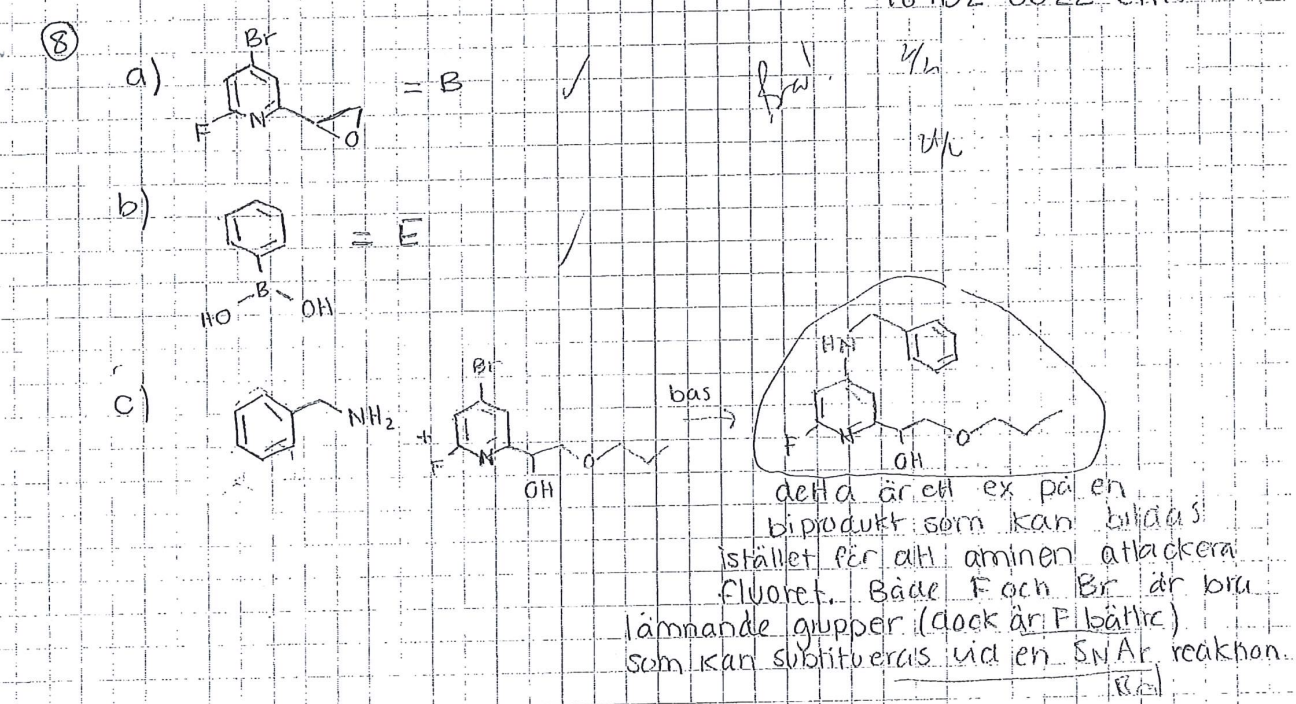 8
a)
Br
F
N
O
= B
bra!
b)
= E
B
HO
OH
c)
NH2
+
Br
F
N
O
OH
bas
HN
F
N
O
OH
detta är ett ex på en
biprodukt som kan bildas
istället för att aminen attackera
fluoret. Både F och Br är bra
lämnande grupper (dock är F bättre)
som kan subtitueras vid en SNAr reaktion.
Bra!